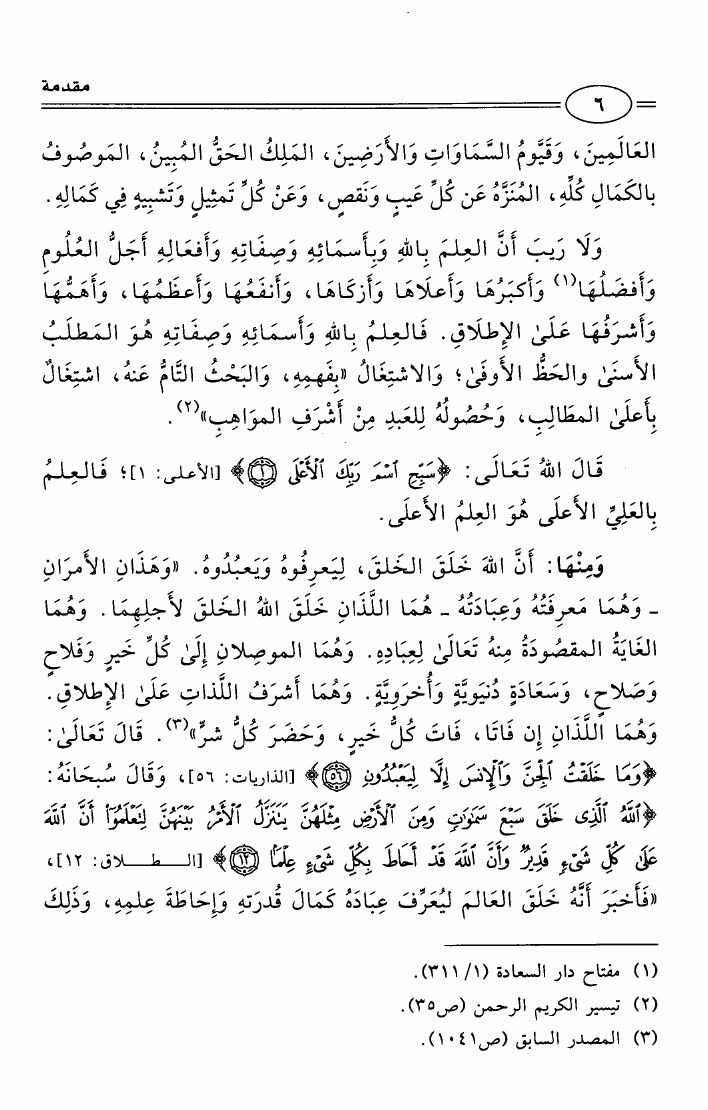 مقدمة
٦
العَالَمِينَ، وَقَيَّومُ السَّمَاوَاتِ وَالأَرَضِينَ، المَلِكُ الحَقُّ المُبِينُ، المَوصُوفُ
بالكَمَالِ كُلِّهِ، المُنَزَّهُ عَن كُلِّ عَيبٍ وَنَقصٍ، وَعَنْ كُلِّ تَمثِيلٍ وَتَشبِيهٍ فِي كَمَالِهِ.
وَلَا رَيبَ أَنَّ العِلمَ بِاللهِ وَبِأَسمَائِهِ وَصِفَاتِهِ وَأَفعَالِهِ أَجَلُّ العُلُومِ
وَأَفضَلُهَا(١) وَأَكبَرُهَا وَأَعلَاهَا وَأَزكَاهَا، وَأَنفَعُهَا وَأَعظَمُهَا، وَأَهَمُّهَا
وَأَشرَفُهَا عَلَىٰ الإِطلَاقِ. فَالعِلمُ بِاللهِ وَأَسمَائِهِ وَصِفَاتِهِ هُوَ المَطلَبُ
الأَسنَىٰ والحَظُّ الأَوفَىٰ؛ وَالاشتِغَالُ «بِفَهمِهِ، وَالبَحْثُ التَّامُّ عَنهُ، اشتِغَالٌ
بِأَعلَىٰ المطَالِبِ، وَحُصُولُهُ لِلعَبدِ مِنْ أَشْرَفِ الموَاهِبِ»(٢).
قَالَ اللهُ تَعَالَى: ﴿سَبِّحِ ٱسْمَ رَبِّكَ ٱلْأَعْلَى ۝١﴾ [الأعلى: ١]؛ فَالعِلمُ
بِالعَلِيِّ الأَعلَى هُوَ العِلمُ الأَعلَى.
وَمِنْهَا: أَنَّ اللهَ خَلَقَ الخَلقَ، لِيَعرِفُوهُ وَيَعبُدُوهُ. «وَهَذَانِ الأَمرَانِ
- وَهُمَا مَعرِفَتُهُ وَعِبَادَتُهُ - هُمَا اللَّذَانِ خَلَقَ اللهُ الخَلقَ لأَجلِهِمَا. وَهُمَا
الغَايَةُ المقصُودَةُ مِنهُ تَعَالَىٰ لِعِبَادِهِ. وَهُمَا الموصِلانِ إِلَىٰ كُلِّ خَيرٍ وَفَلَاحٍ
وَصَلاحٍ، وَسَعَادَةٍ دُنيَوِيَّةٍ وَأُخرَوِيَّةٍ. وَهُمَا أَشرَفُ اللَّذاتِ عَلَىٰ الإِطلَاقِ.
وَهُمَا اللَّذَانِ إِن فَاتَا، فَاتَ كُلُّ خَيرٍ، وَحَضَرَ كُلُّ شرٍّ»(٣). قَالَ تَعَالَىٰ:
﴿وَمَا خَلَقْتُ ٱلْجِنَّ وَٱلْإِنسَ إِلَّا لِيَعْبُدُونِ ۝٥٦﴾ [الذاريات: ٥٦]، وَقَالَ سُبحَانَهُ:
﴿ٱللَّهُ ٱلَّذِى خَلَقَ سَبْعَ سَمَٰوَٰتٍ وَمِنَ ٱلْأَرْضِ مِثْلَهُنَّ يَتَنَزَّلُ ٱلْأَمْرُ بَيْنَهُنَّ لِتَعْلَمُوٓا۟ أَنَّ ٱللَّهَ
عَلَىٰ كُلِّ شَىْءٍ قَدِيرٌ وَأَنَّ ٱللَّهَ قَدْ أَحَاطَ بِكُلِّ شَىْءٍ عِلْمًۢا ۝١٢﴾ [الـطـلاق: ١٢]،
«فَأَخبَرَ أَنَّهُ خَلَقَ العَالمَ لِيُعَرِّفَ عِبَادَهُ كَمَالَ قُدرَتهِ وَإِحَاطَةَ عِلمِهِ، وَذَلِكَ
(١) مفتاح دار السعادة (١/ ٣١١).
(٢) تيسير الكريم الرحمن (ص٣٥).
(٣) المصدر السابق (ص١٠٤١).